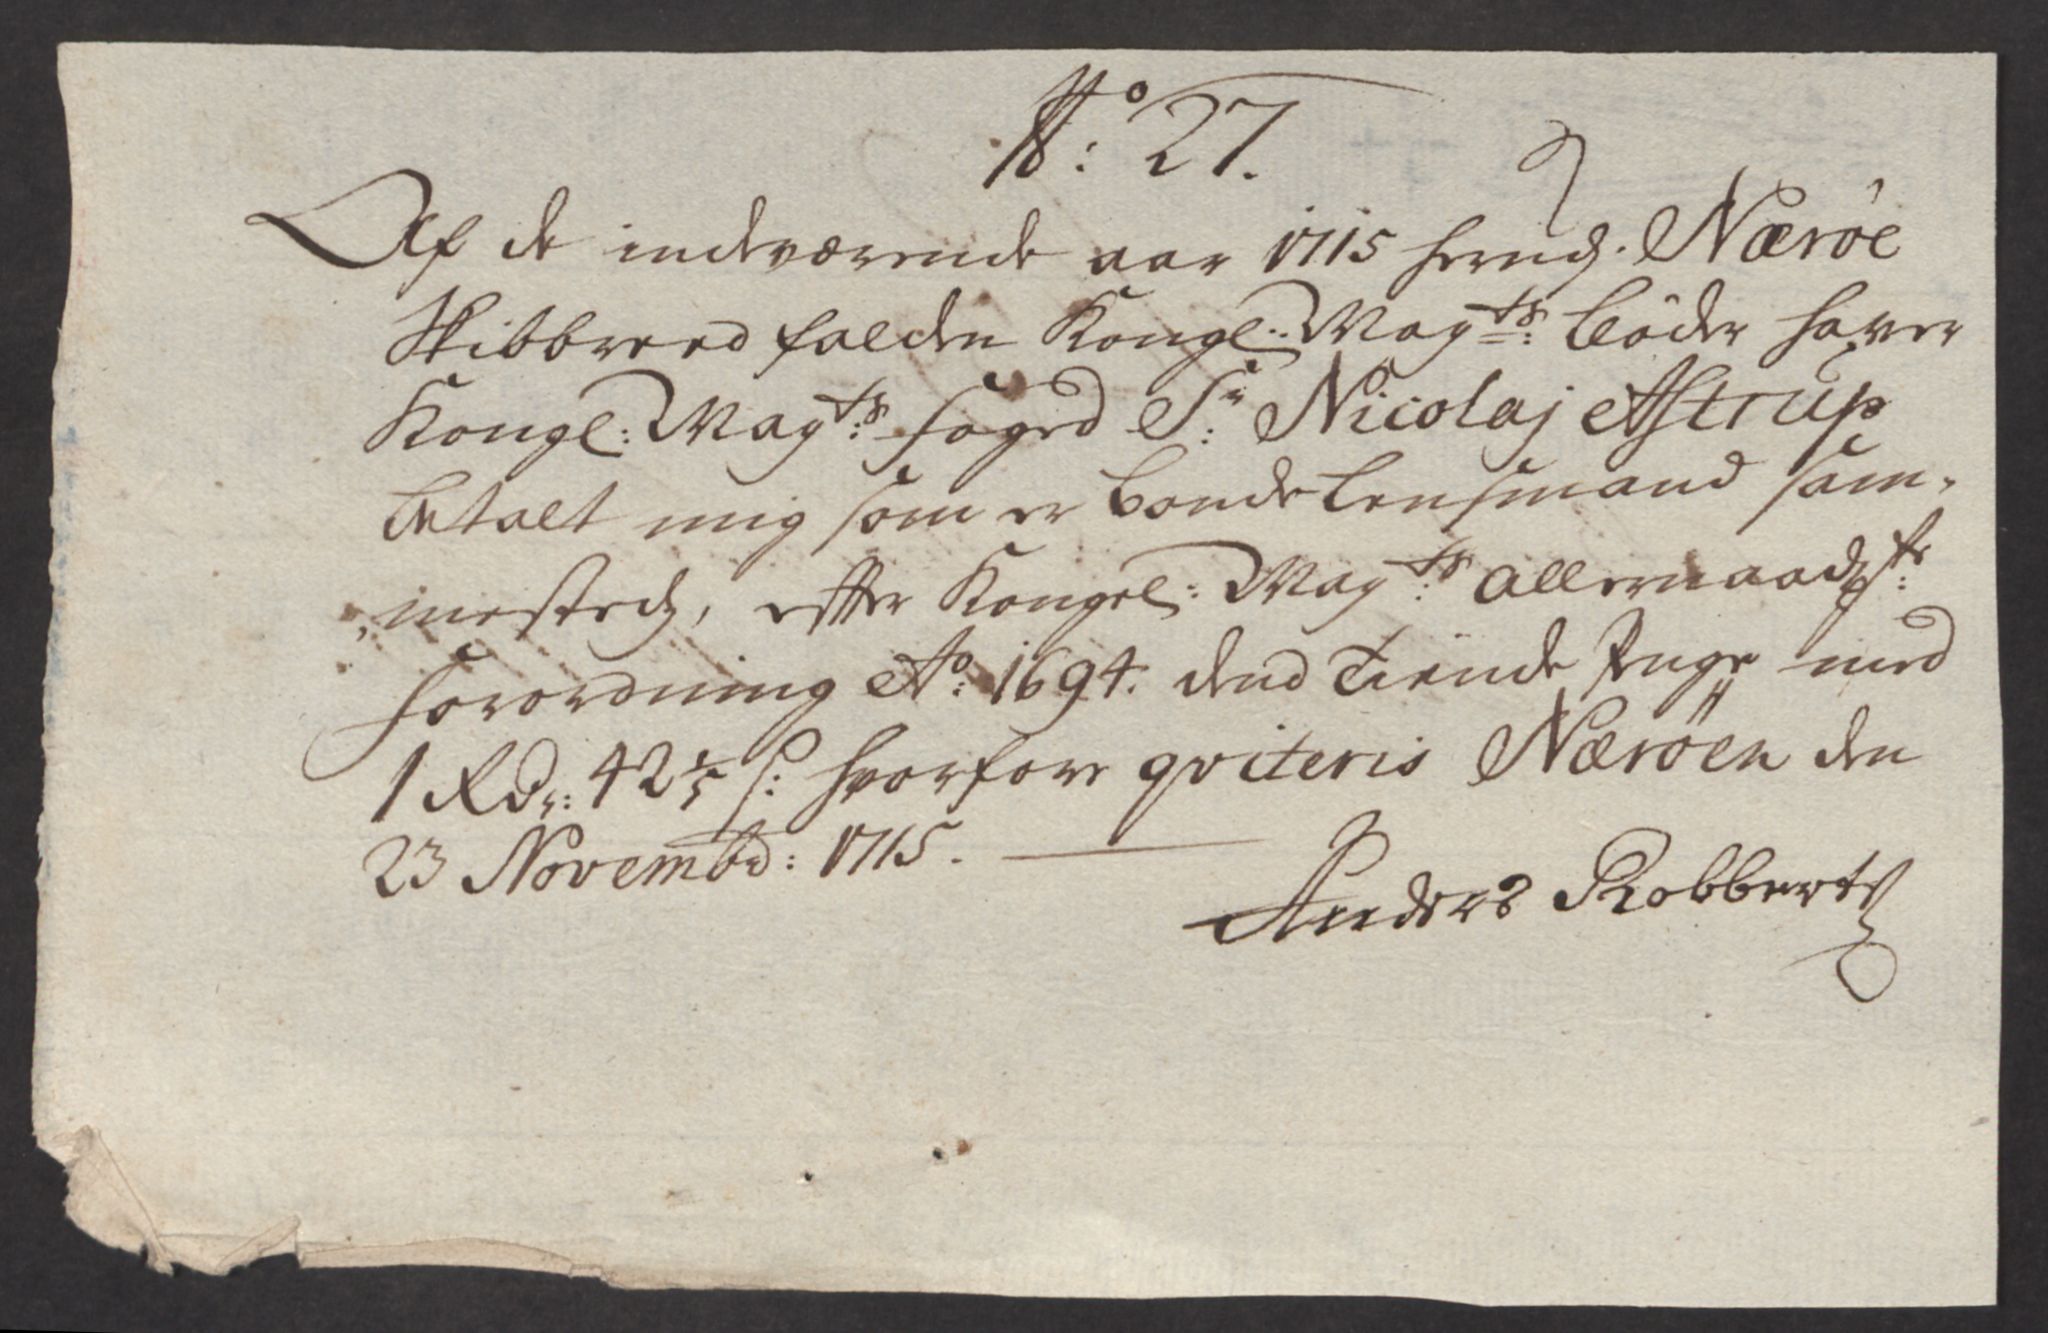 No: 27.
Af de indeværende aar 1715 herudj. Nærøe
Skibbreed falden Kongl: Mayts: bøder haver
Kongl: Mayts: foged Sr: Nicolaj Astrup
betalt mig som er bonde Lensmand sam-
mestedz, effter Kongel: Mayts: allernaadgste:
forordning Ao: 1694. dend tiende Penge med
1 Rdr: 42 1/5 s: hvorfore qviteris Nærøen den
23 Novembd: 1715.
Anders Robbertz